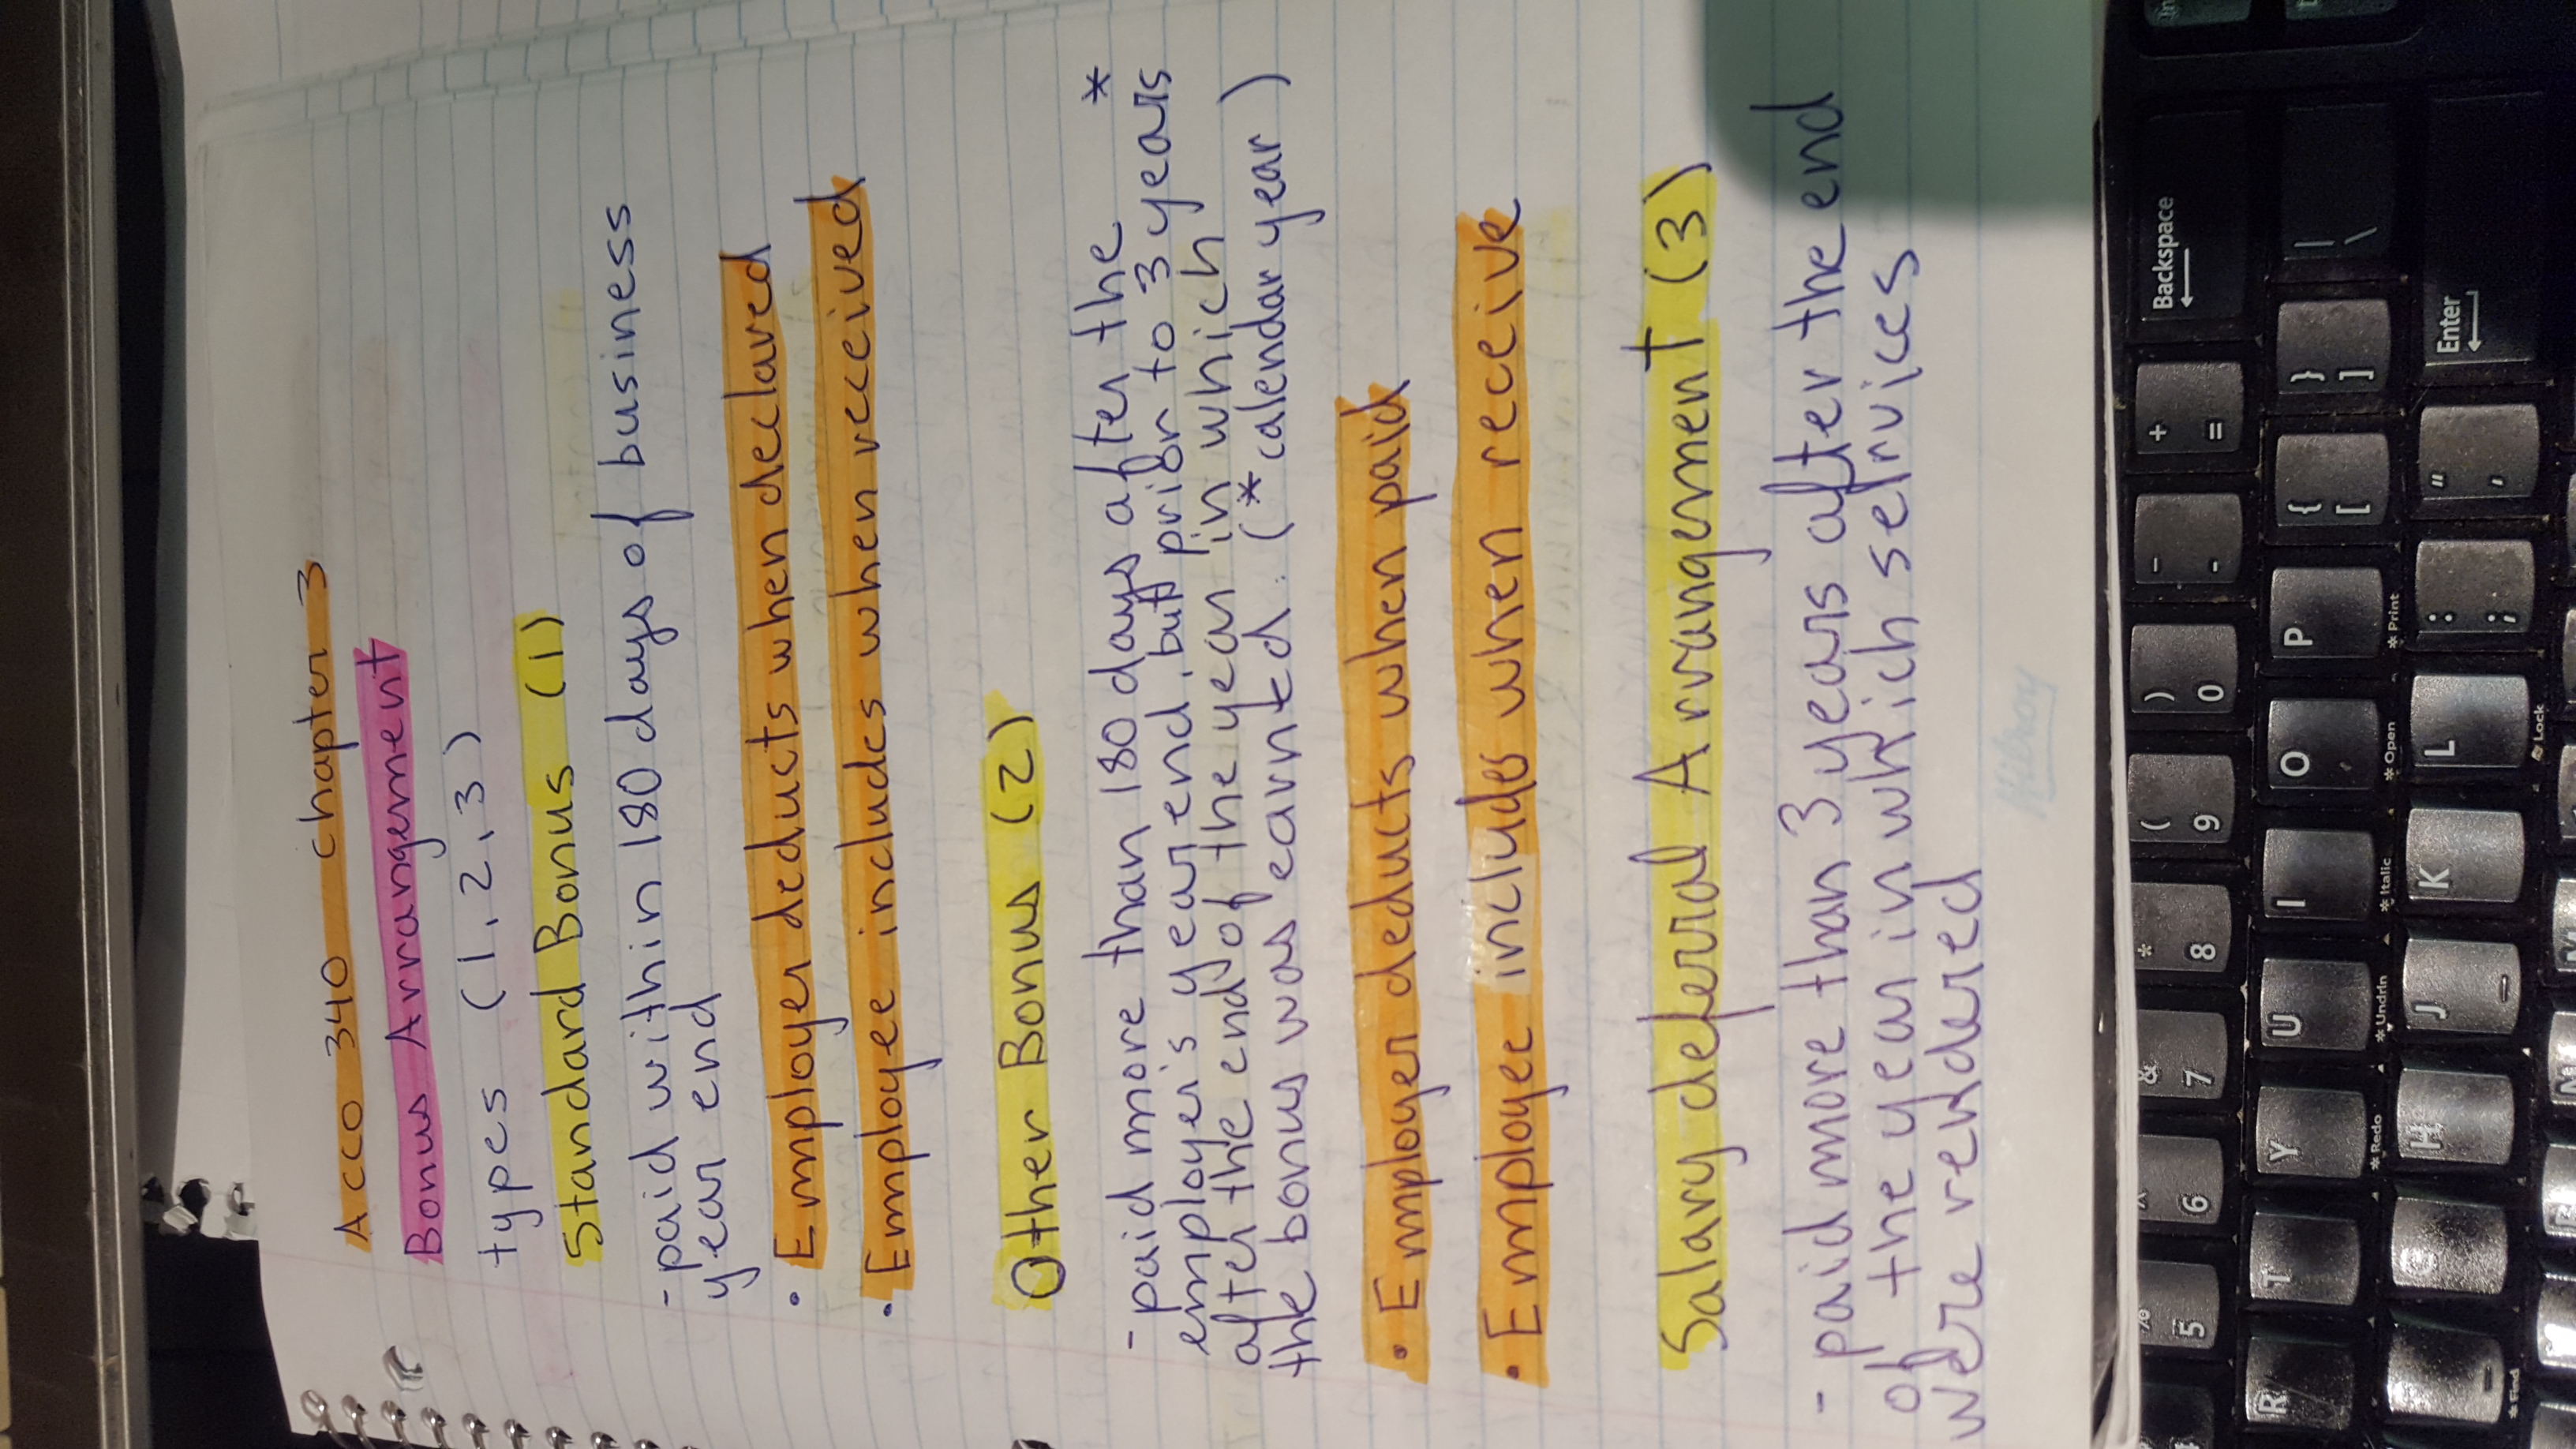 Acco 340 chapter 3
Bonus Arrangement
types (1,2,3)
Standard Bonus (1)
- paid within 180 days of business
year end
• Employer deducts when declared
• Employee includes when received
Other Bonus (2)
- paid more than 180 days after the *
employer's year end, but prior to 3 years
after the end of the year in which
the bonus was earnted. (* calendar year)
• Employer deducts when paid
• Employee includes when receive
Salary deferral Arrangement (3)
- paid more than 3 years after the end
of the year in which services
were rendered
Hilroy
Backspace
Enter
+ =
- -
) 0
( 9
* 8
& 7
^ 6
% 5
| \
} ]
{ [
P
*Print
O
*Open
I
*Italic
U
*Undrln
Y
*Redo
T
R
" '
: ;
L
*Lock
K
J
H
G
*Find